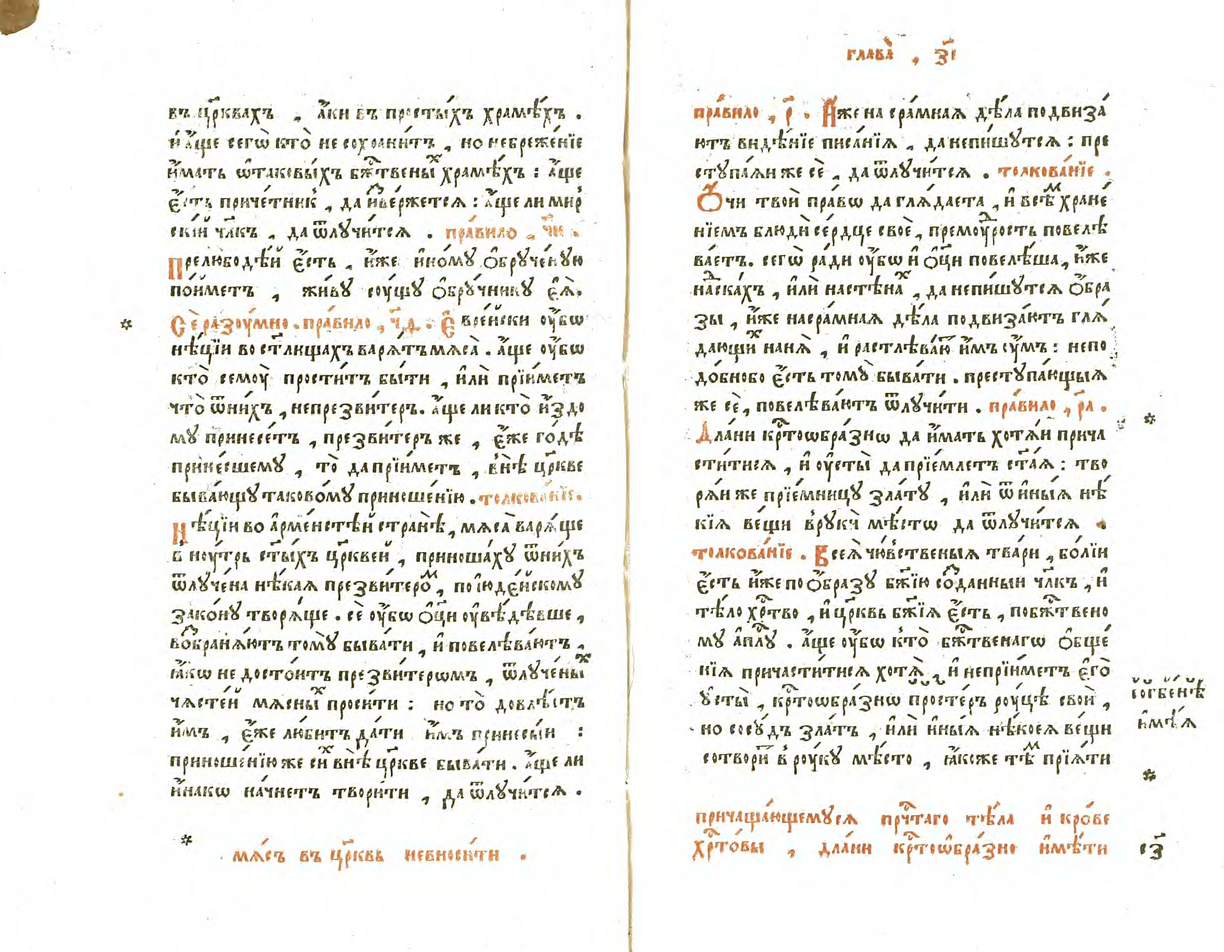 въ црⷪ҇квахъ , а҆́ки въ просты́хъ храмѣ́хъ .
и҆ а҆́ще сегѡ̀ кто̀ не сохрани́тъ , но небреже́нїе
и҆́мать ѿ таковы́хъ бж҃твены́ⷯ храмѣ́хъ : а҆́ще
є҆́сть приче́тник , да и҆зве́ржетсѧ : а҆́ще ли мир
скі́й чл҃къ , да ѿлꙋчи́тсѧ . пра́вило , ч҃и .
Прелюбодѣ́й є҆́сть , и҆́же и҆но́мꙋ ѻ҆брꙋче́нꙋю
по́йметъ , жи́вꙋ сꙋ́щꙋ ѻ҆брꙋ́чникꙋ є҆ѧ̀.
Сѐ разꙋ́мно . пра́вило , ч҃д . Є҆вре́йски ᲂу҆́бѡ
нѣ́цїи во ст҃и́лищахъ варѧ́тъ мѧса̀ . а҆́ще ᲂу҆́бѡ
кто̀ семꙋ̀ прости́тъ бы́ти , и҆лѝ прїи́метъ
что̀ ѿ ни́хъ , непрезви́теръ. а҆́ще ли кто̀ и҆з до
мꙋ принесе́тъ , презви́теръ же , є҆́же го́дѣ
прине́сшемꙋ , то̀ да прїи́метъ , внѣ̀ цр҃кве
быва́ющꙋ таково́мꙋ приноше́нїю . толкова́нїе.
Нѣ́цїи во а҆рме́нстѣй странѣ̀ , мѧса̀ варѧ́ще
в ноу́трь ст҃ы́хъ цр҃кве́й , приноша́хꙋ ѿ ни́хъ
ѿлꙋче́на нѣ́каѧ презви́тероⷨ , по і҆юде́йскомꙋ
зако́нꙋ творѧ́ще . сѐ ᲂу҆́бѡ ѻ҆ц҃ы ᲂу҆вѣ́дѣвше ,
возбранѧ́ютъ томꙋ̀ быва́ти , и҆ повелѣва́ютъ ,
ꙗ҆́кѡ не досто́итъ презви́терѡмъ , ѿлꙋче́ныⷯ
часте́й мѧсны́ⷯ проси́ти : но то̀ довлѣ́етъ
и҆̀мъ , є҆́же лю́битъ да́ти и҆̀мъ принесы́и :
приноше́нїю же си́ⷯ внѣ̀ цр҃кве быва́ти . а҆́ще ли
и҆на́кѡ начне́тъ твори́ти , да ѿлꙋчи́тсѧ .
* мѧ́съ въ цр҃квь невноси́ти .
глава̀ , з҃і
пра́вило , р҃ . А҆́же на сра́мнаѧ дѣ́ла подвиза́
ютъ ви́дѣнїе писа́нїѧ , да непи́шꙋтсѧ : пре
стꙋпа́ѧи же сѐ , да ѿлꙋчи́тсѧ . толкова́нїе .
Ѻ҆́чи твоѝ пра́вѡ да глѧ́даета , и҆ всѣ́ⷨ хране
нїемъ блюдѝ се́рдце своѐ , премⷣрость повелѣ
ва́етъ. сегѡ̀ ра́ди ᲂу҆́бѡ и҆ ѻ҆ц҃ы повелѣ́ша, и҆́же
на дска́хъ , и҆лѝ на стѣна́ⷯ , да непи́шꙋтсѧ ѻ҆́бра
зы , и҆́же на сра́мнаѧ дѣ́ла подвиза́ютъ глѧ́
дающиⷯ на нѧ̀ , и҆ растлѣва́ю и҆́мъ ᲂу҆́мъ : непо
до́бно бо є҆́сть томꙋ̀ быва́ти . престꙋпа́ющыѧ
же сѐ , повелѣва́ютъ ѿлꙋчи́ти . пра́вило , р҃а .
Дла́ни крⷭ҇тоѡбра́знѡ да и҆́мать хотѧ́и прича
сти́тисѧ , и҆ ᲂу҆сты̀ да прїе́млетъ ст҃а́ѧ : тво
рѧ́и же прїе́мницꙋ зла́тꙋ , и҆лѝ ѿ и҆ны́ѧ нѣ
кїѧ ве́щи в рꙋкѝ мѣ́стѡ да ѿлꙋчи́тсѧ .
толкова́нїе . Всеѧ̀ чю́вственыѧ тва́ри , бо́лїи
є҆́сть и҆́же по ѻ҆́бразꙋ бж҃їю со́зданныи чл҃къ , и҆
тѣ́ло хрⷭ҇тво , и҆ цр҃квь бж҃їѧ є҆́сть , по бжⷭ҇твено
мꙋ а҆пⷭ҇лꙋ . а҆́ще ᲂу҆́бѡ кто̀ бжⷭ҇твенагѡ ѻ҆бще́
нїѧ причасти́тисѧ хотѧ̀ , и҆ непрїи́метъ є҆го̀
ᲂу҆сты̀ , крⷭ҇тоѡбра́знѡ просте́ръ рꙋ́цѣ своѝ ,
но сосꙋ́дъ зла́тъ , и҆лѝ и҆ны́ѧ нѣ́коеѧ ве́щи
сотвори́ⷮ в рꙋ́кꙋ мѣ́сто , ꙗ҆́коже тѣ́ⷨ прїѧ́ти
и҆мѣ́ѧ
* причаща́ющемꙋсѧ прⷭ҇чтаго тѣ́ла и҆ кро́ве
хрⷭ҇то́вы , дла́ни крⷭ҇тоѡбра́зно и҆мѣ́ти
с҃з